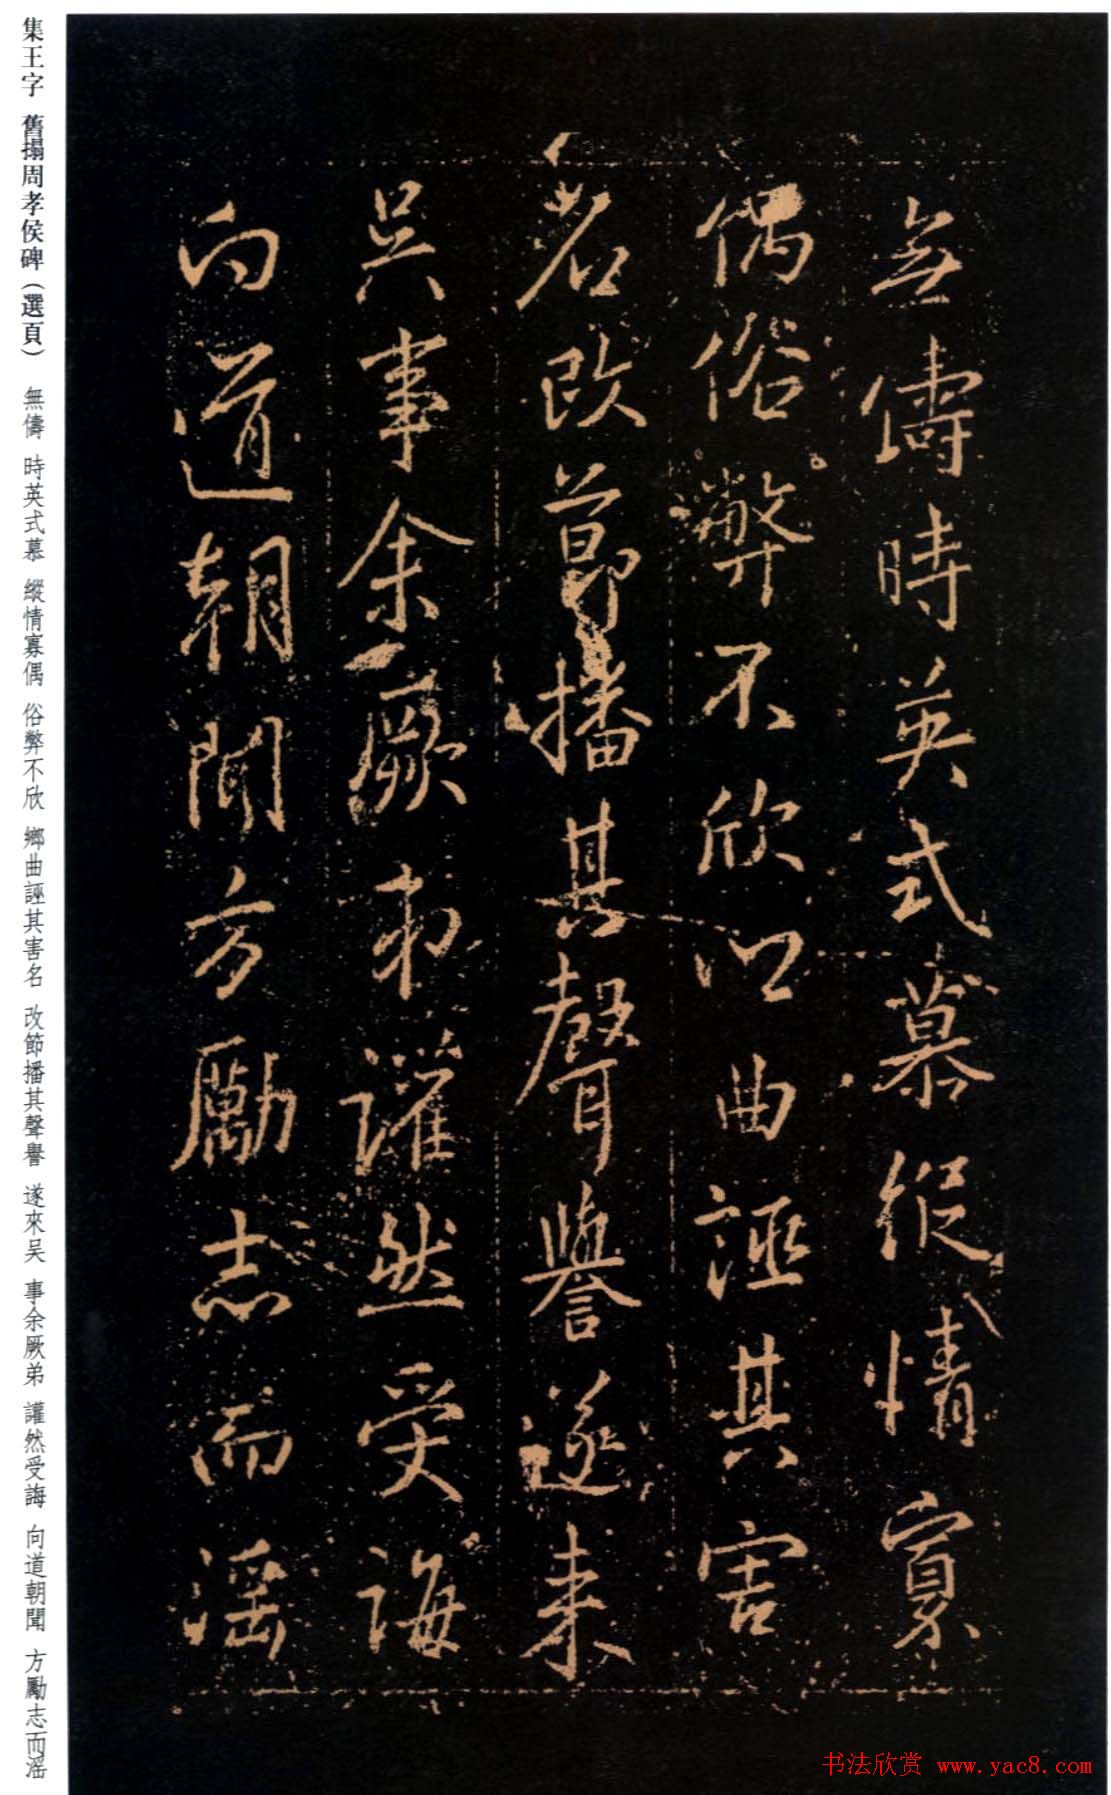 集王字 舊搨周孝侯碑(選頁) 無儔 時英式慕 縱情寡偶 俗弊不欣 鄉曲誣其害名 改節播其聲譽 遂來吴 事余厥弟 讙然受誨 向道朝聞 方勵志而滛
無儔時英式慕縱情寡
偶俗弊不欣鄉曲誣其害
名改節播其聲譽遂来
吴事余厥弟讙然受誨
向道朝聞方勵志而滛
书法欣赏 www.yac8.com